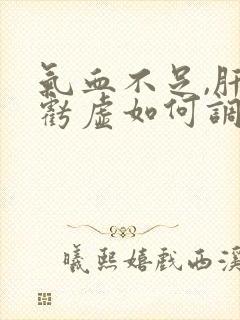 氣血不足,肝
虧虛如何調
曦熙嬉戲西溪